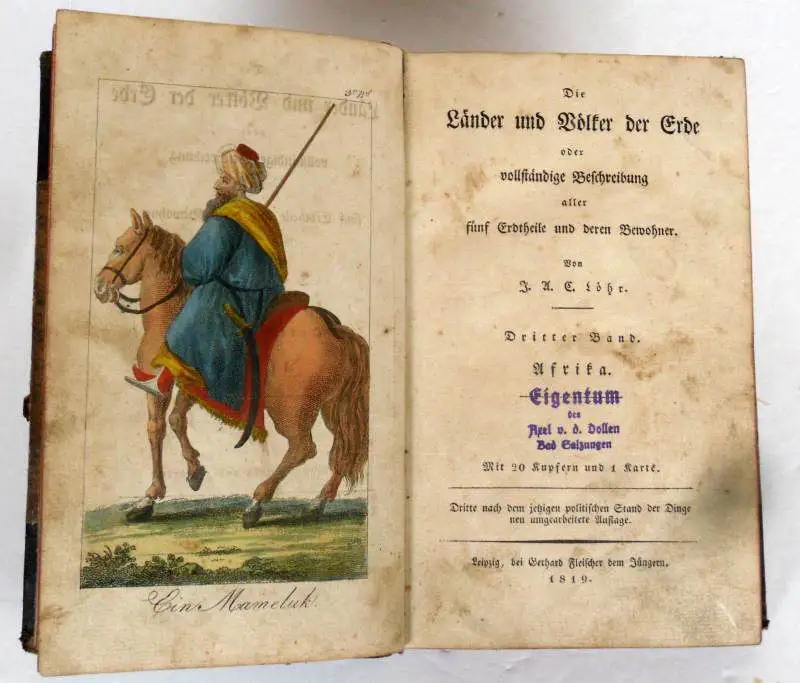 3r Bd
Ein Mameluk.
Die
Länder und Völker der Erde
oder
vollständige Beschreibung
aller
fünf Erdtheile und deren Bewohner.
Von
J. A. C. Löhr.
Dritter Band.
Afrika.
Eigentum
des
Axel v. d. Dollen
Bad Salzungen
Mit 20 Kupfern und 1 Karte.
Dritte nach dem jetzigen politischen Stand der Dinge
neu umgearbeitete Auflage.
Leipzig, bei Gerhard Fleischer dem Jüngern.
1819.